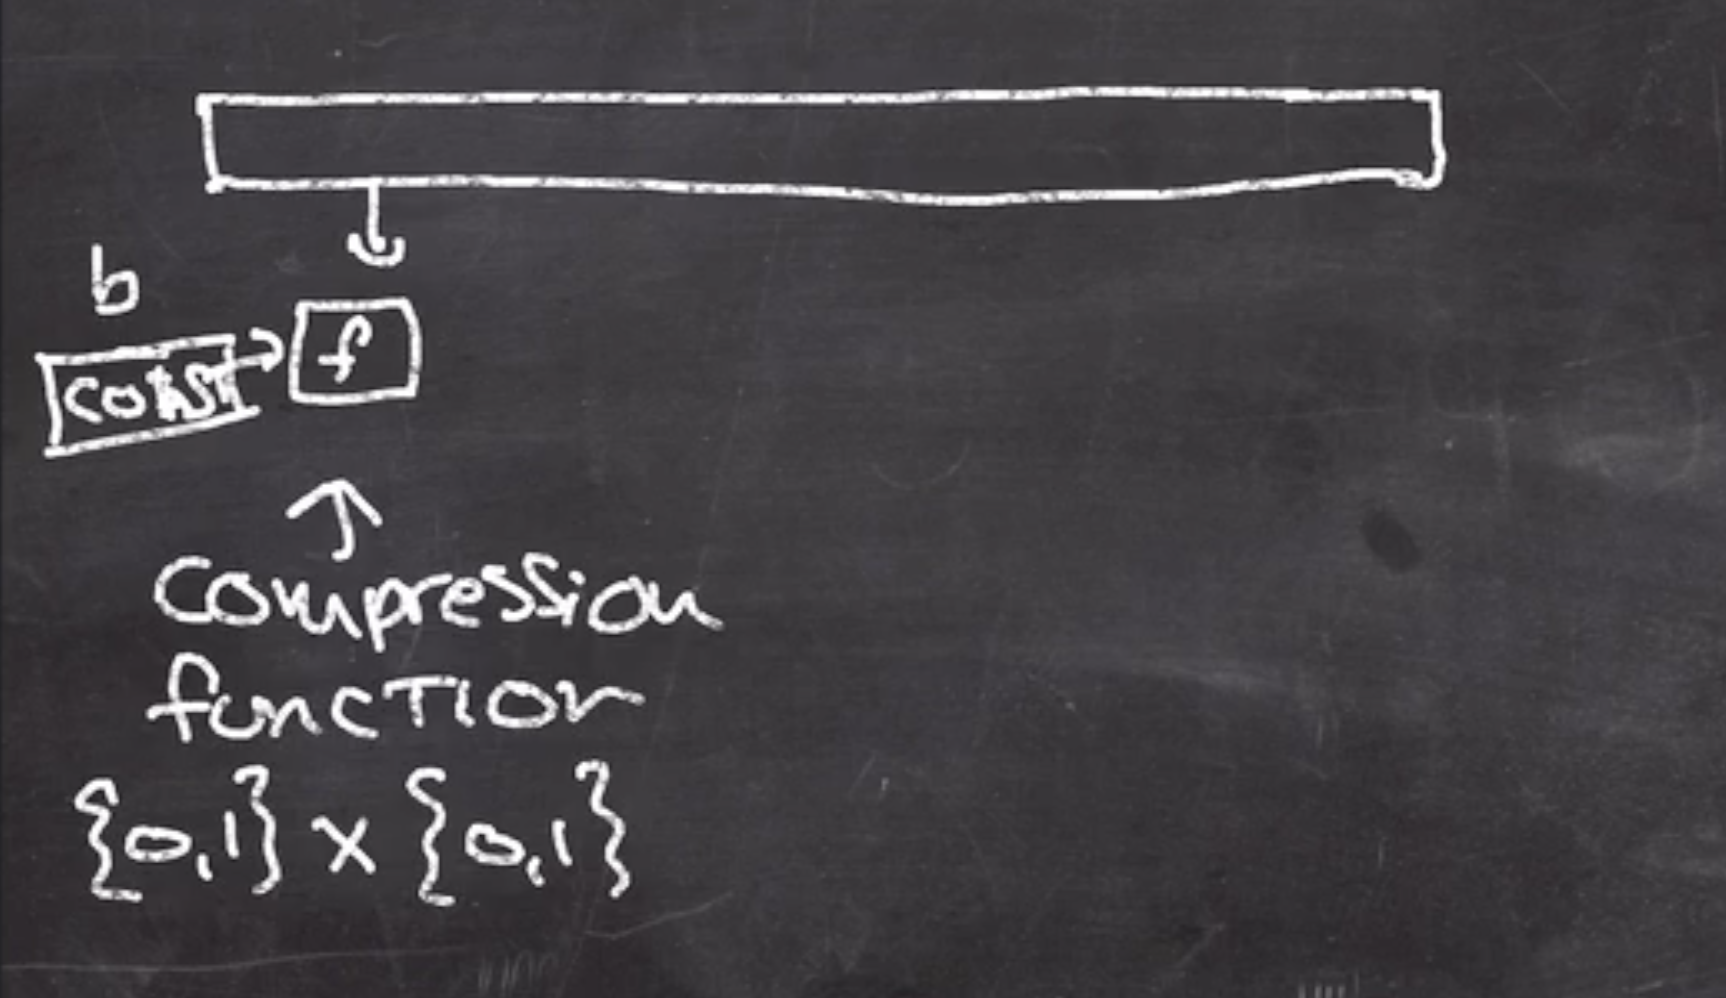 b
const
f
compression
function
{0,1} x {0,1}